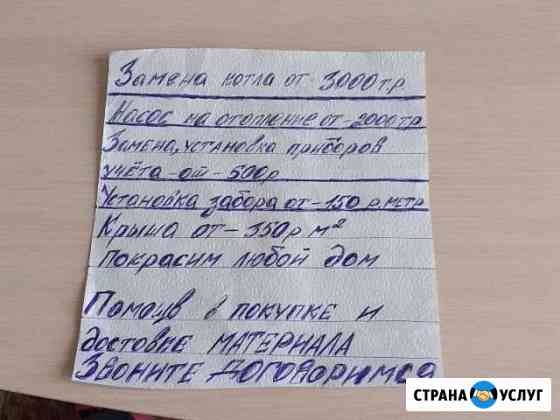 Замена котла от 3000 т.р
Насос на отопление от-2000 тр
Замена, установка приборов
учёта-от-500р
Установка забора от-150 р.метр
Крыша от-350р м²
покрасим любой дом
Помощв в покупке и
достовке МАТЕРИАЛА
Звоните договоримся
СТРАНА УСЛУГ